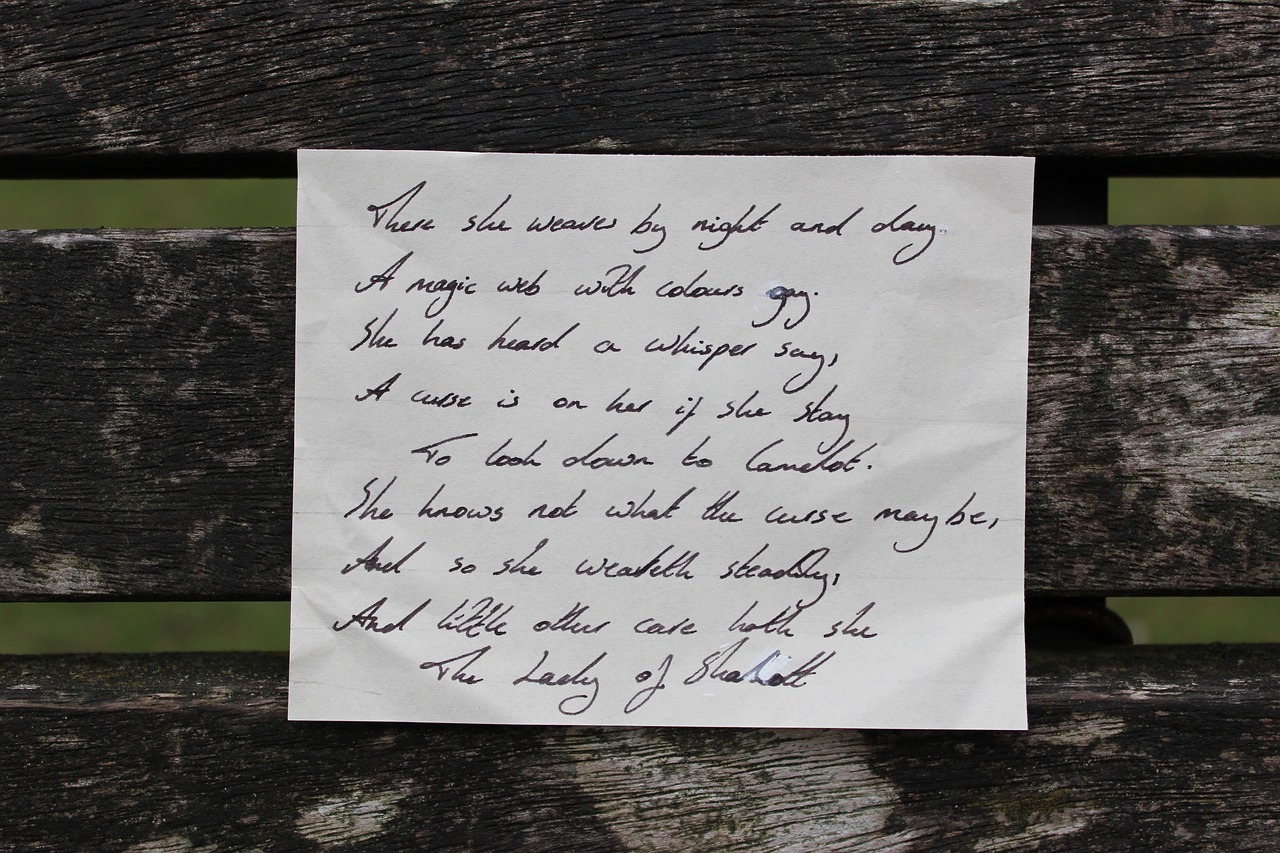 There she weaves by night and day.
A magic web with colours gay.
She has heard a whisper say,
A curse is on her if she stay
To look down to Camelot.
She knows not what the curse maybe,
And so she weaveth steadily,
And little other care hath she
The Lady of Shalott